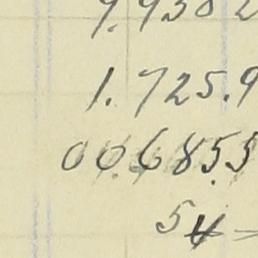 9.9302
1.725.9
006855
54